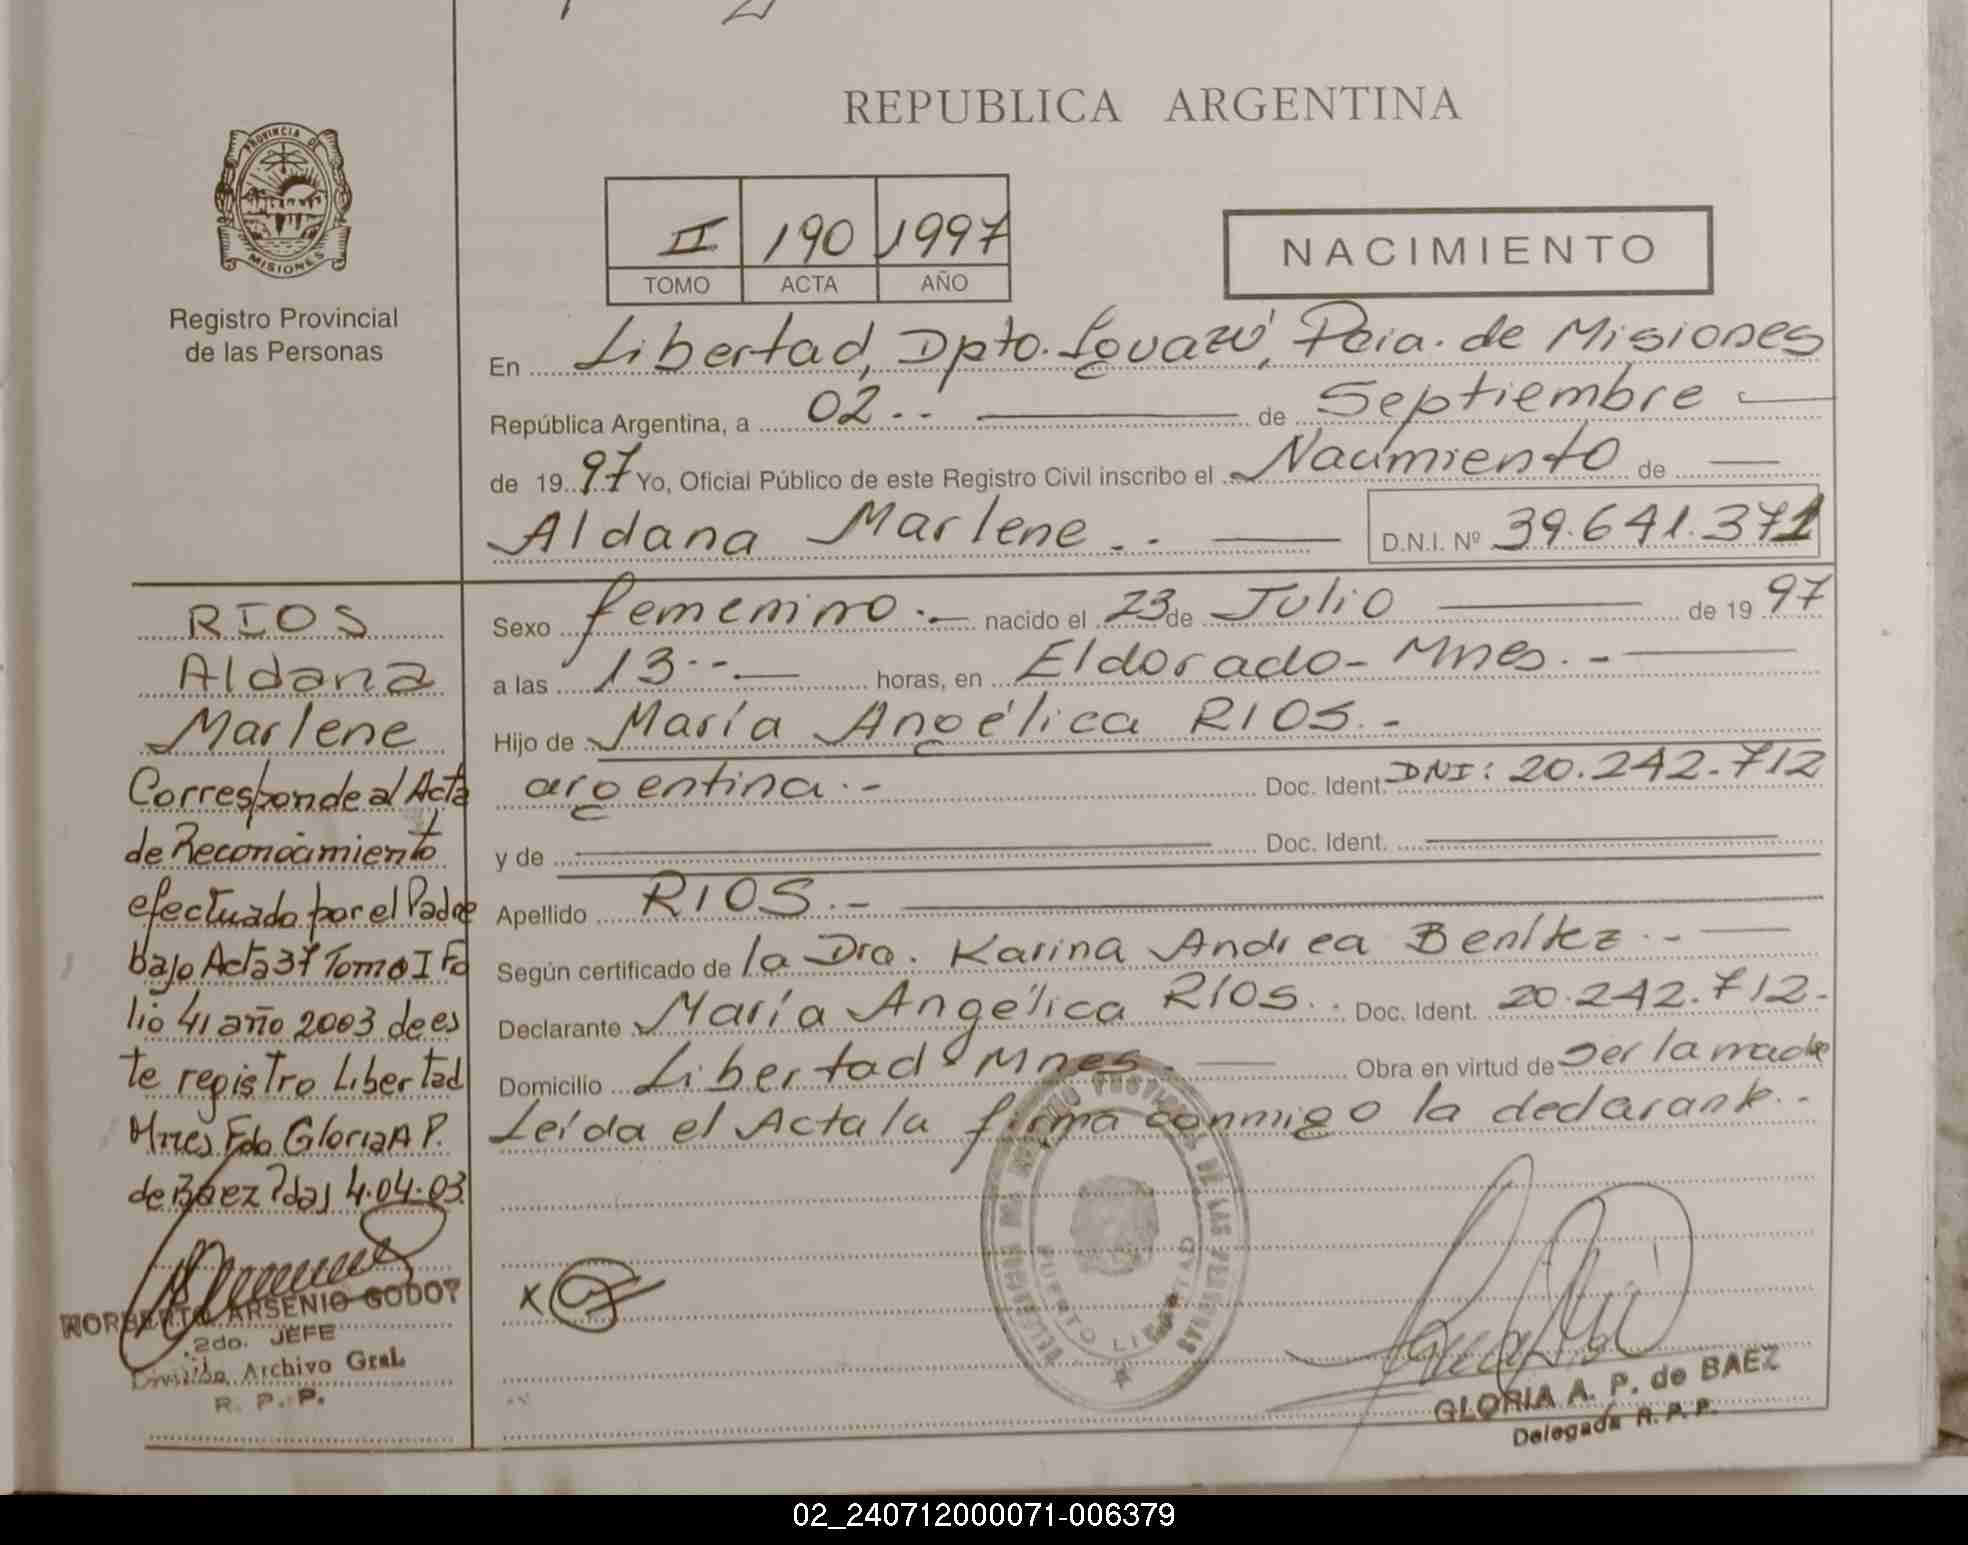 REPUBLICA ARGENTINA
PROVINCIA DE
MISIONES
Registro Provincial
de las Personas
II 190 1997
TOMO ACTA AÑO
NACIMIENTO
En Libertad, Dpto. Iguazú, Pcia. de Misiones
República Argentina, a 02.. de Septiembre
de 19 97 Yo, Oficial Público de este Registro Civil inscribo el Nacimiento de
Aldana Marlene.. D.N.I. Nº 39.641.371
Sexo femenino.- nacido el 23 de Julio de 19 97
a las 13.-- horas, en Eldorado- Mnes.-
Hijo de María Angélica RIOS.-
argentina.- Doc. Ident. DNI: 20.242.712
y de Doc. Ident.
Apellido RIOS.-
Según certificado de la Dra. Karina Andrea Benítez.-
Declarante María Angélica Ríos.. Doc. Ident. 20.242.712.-
Domicilio Libertad- Mnes. Obra en virtud de ser la madre
Leída el Acta la firma conmigo la declarante.-
RIOS
Aldana
Marlene
Corresponde al Acta
de Reconocimiento
efectuado por el Padre
bajo Acta 37 Tomo I Fo
lio 41 año 2003 de es
te registro Libertad
Mnes Fdo Gloria A P.
de Baez 4.04.03
NORBERTO ARSENIO GODOY
2do. JEFE
División Archivo Gral.
R. P. P.
X
PUERTO LIBERTAD
GLORIA A. P. de BAEZ
Delegada R. P. P.
02_240712000071-006379